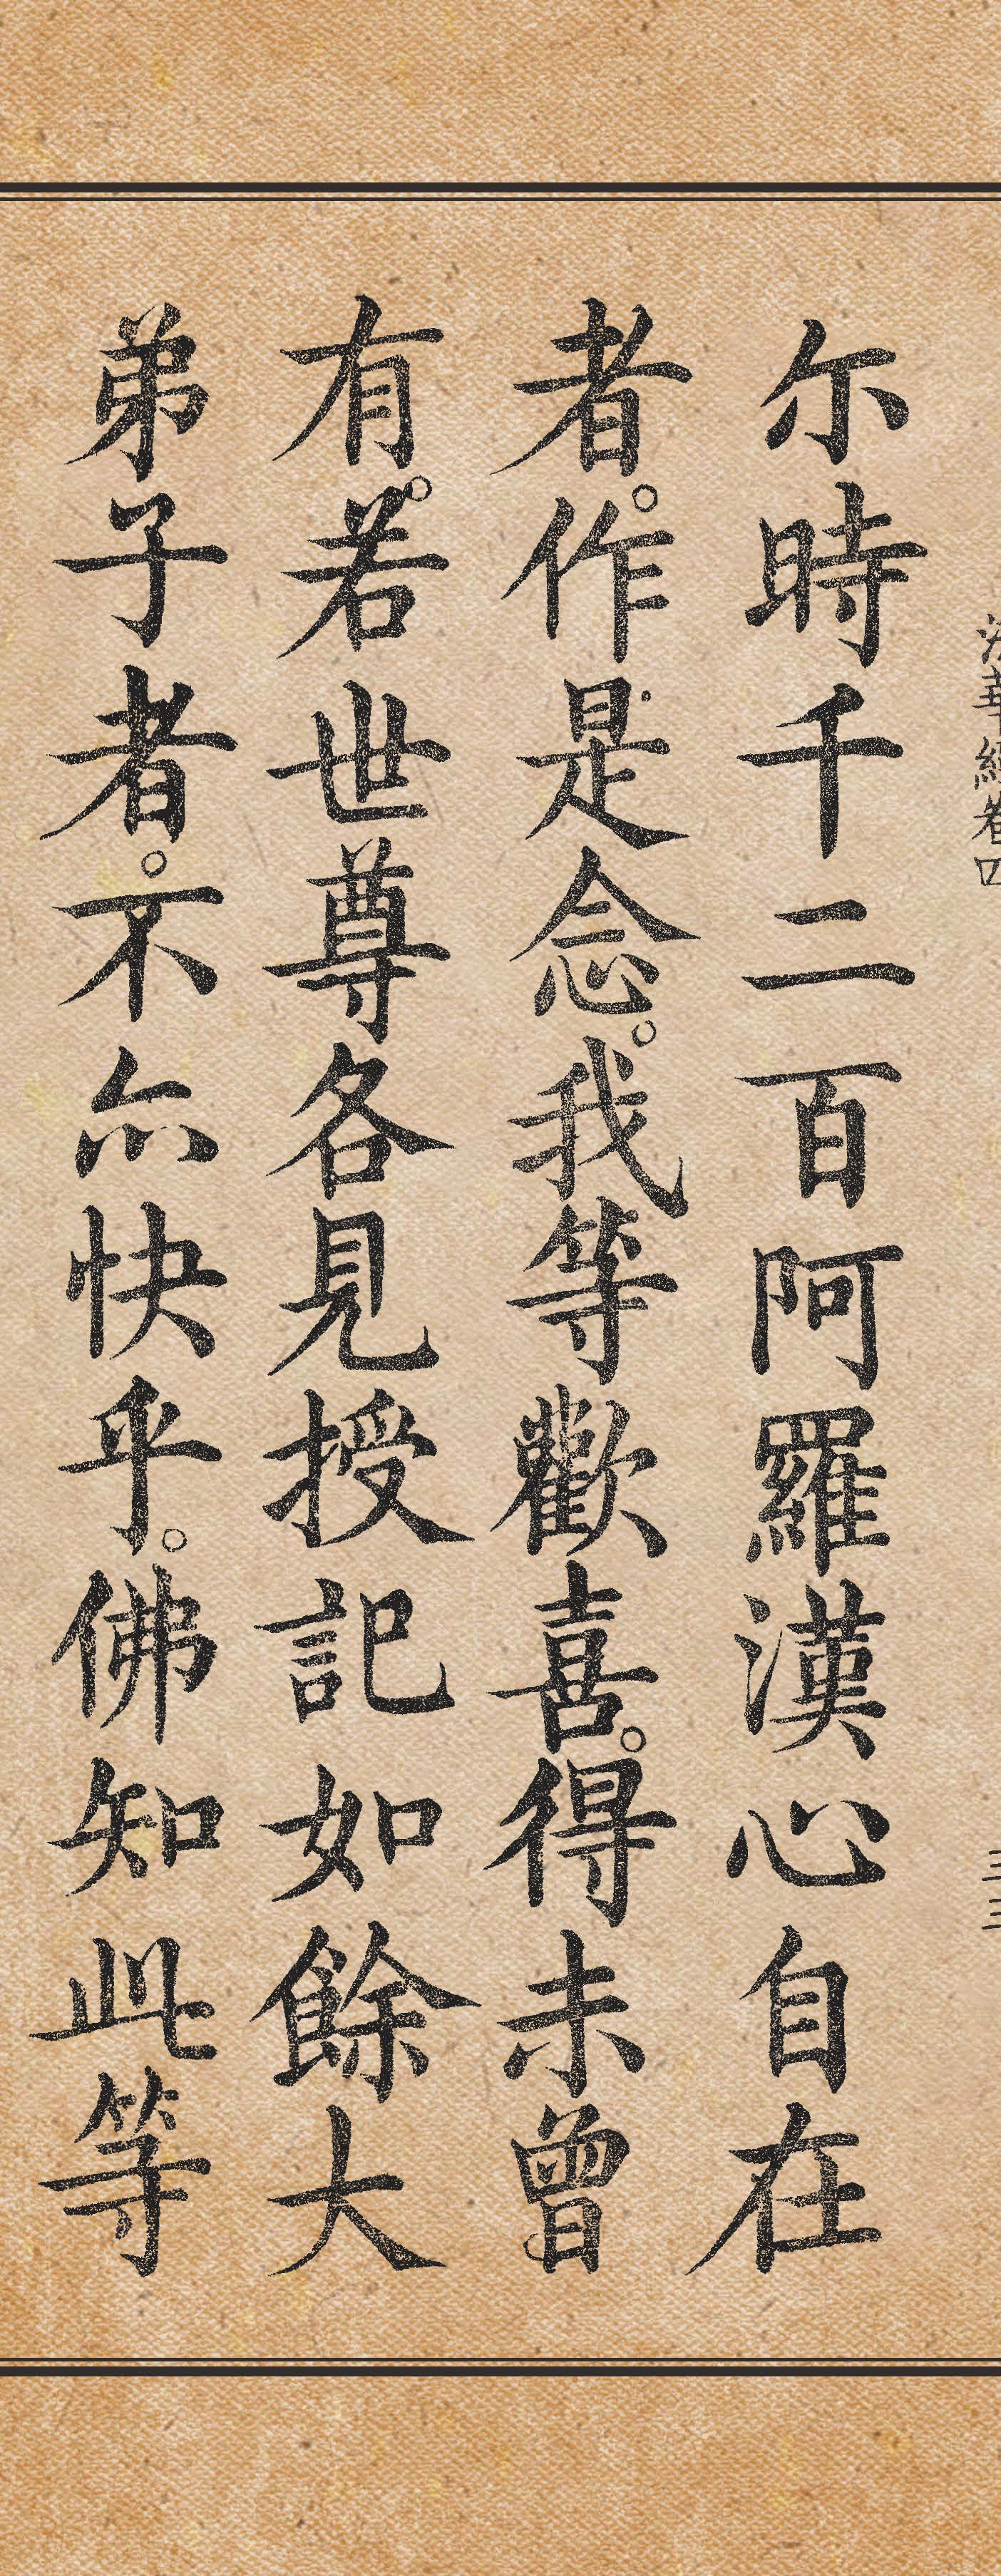 法華經卷四
三三
尔時千二百阿羅漢心自在
者。作是念。我等歡喜。得未曾
有。若世尊各見授記如餘大
弟子者。不亦快乎。佛知此等